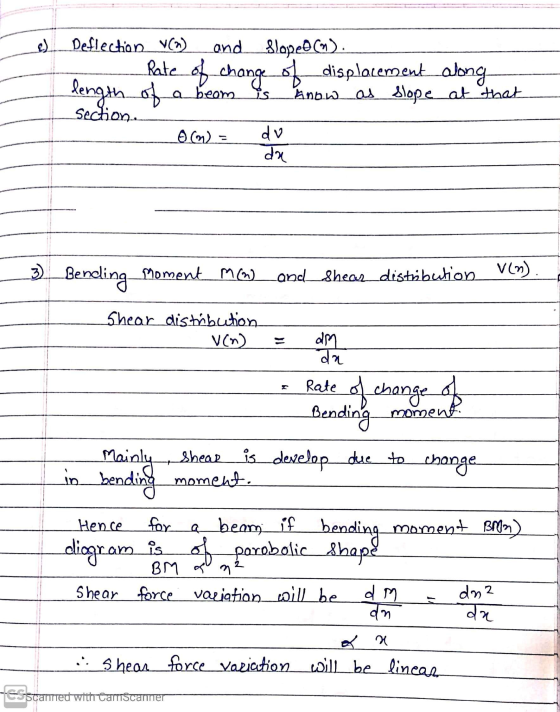 c) Deflection v(x) and Slope θ(x).
Rate of change of displacement along
length of a beam is know as slope at that
section.
θ(x) = dv
dx
3) Bending moment M(x) and shear distribution V(x).
Shear distribution
V(x) = dM
dx
= Rate of change of
Bending moment.
Mainly, shear is develop due to change
in bending moment.
Hence for a beam if bending moment BM(x)
diagram is of parabolic shape
BM ∝ x²
Shear force variation will be dM = dx²
dx dx
∝ x
∴ Shear force variation will be linear
CS Scanned with CamScanner